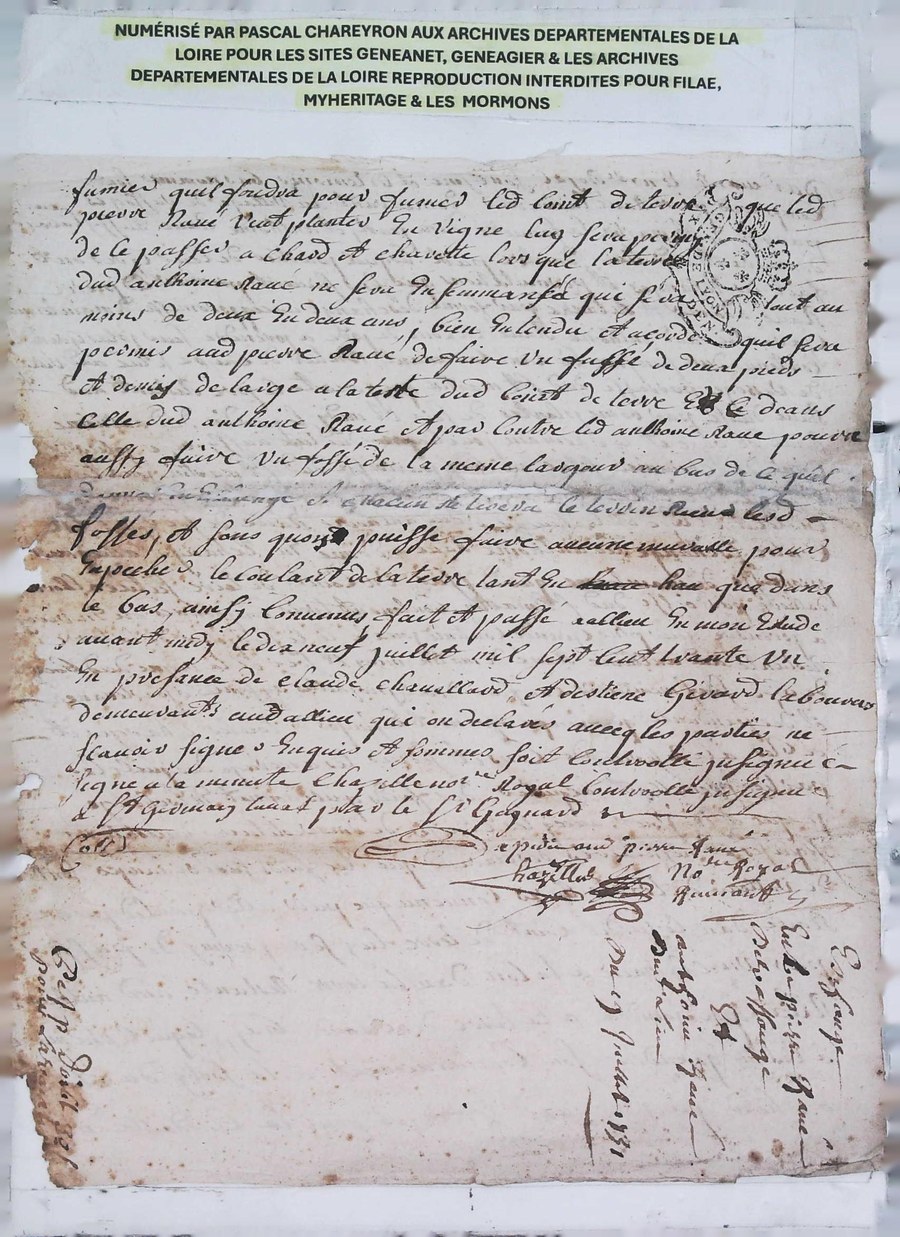 NUMÉRISÉ PAR PASCAL CHAREYRON AUX ARCHIVES DEPARTEMENTALES DE LA
LOIRE POUR LES SITES GENEANET, GENEAGIER & LES ARCHIVES
DEPARTEMENTALES DE LA LOIRE REPRODUCTION INTERDITES POUR FILAE,
MYHERITAGE & LES MORMONS
fumier quil foudra pour fumer led coint de terre que led
pierre Raué veut planter En vigne luy sera permis
de le passer a chard et charette lors que la terre
dud anthoine Raué ne sera Ensemmansée qui sera tout au
moins de deux En deux ans, bien Entendu et acordé quil sera
permis aud pierre Raué de faire un fussé de deux pieds
et demis de large a la teste dud coint de terre Et ce deans
celle dud anthoine Raué et par contre led anthoine Raue pourra
aussy faire un fossé de la meme largour au bas de ce quil
donne En Echange et chacun retirera le terrin desd
fossés, et sans quon puisse faire aucune muralle pour
Enpecher le coulant de la terre tant En hau que dans
le bas, ainsy convenus fait et passé a allieu En mon Etude
auant midy le dix neuf juillet mil sept cent trante un
En presance de claude chauallard et destiene Girard laboureurs
demeurants aud allieu qui on declarés aucq les parties ne
scauoir signer Enquis et sommes, soit controollé jnsignué
signe a la minute Chazelle not.re Royal controollé jnsigné
a St Germain Laual par le Sr Gognard
Coll
expedie aud pierre Raué
Chazelles No.re Royal
Echange
Entre pierre Raue
Et
anthoine Raue
Dallieu
Du 19 juillet 1731